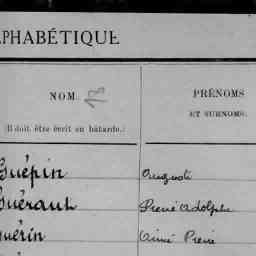 LPHABÉTIQUE
NOM
PRÉNOMS
ET SURNOMS.
(Il doit être écrit en bâtarde.)
Guépin Auguste
Guérault Pierre Adolphe
Guérin Aimé Pierre